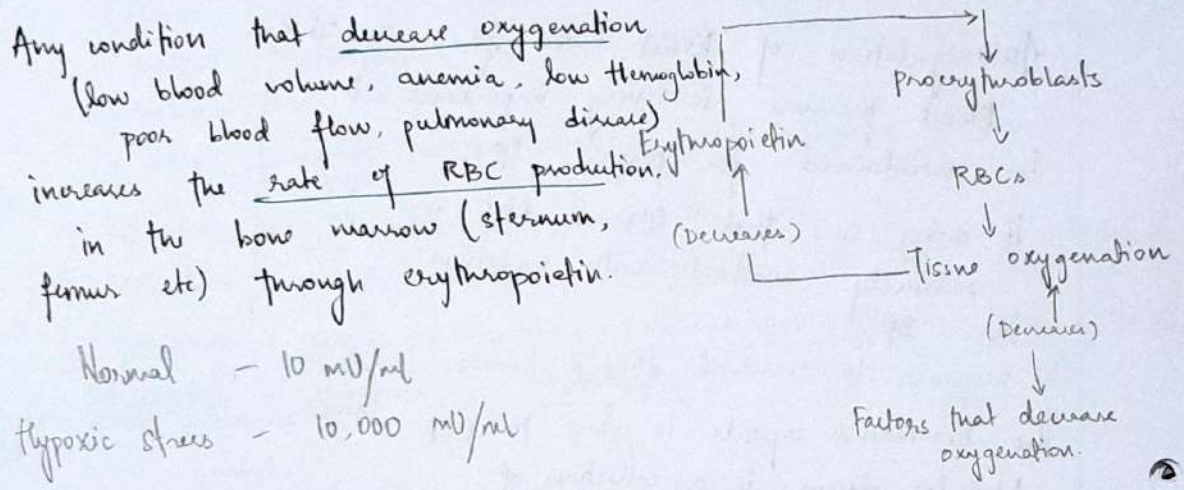 Any condition that decrease oxygenation
(low blood volume, anemia, low Hemoglobin,
poor blood flow, pulmonary disease)
increases the rate of RBC production.
in the bone marrow (sternum,
femur etc) through erythropoietin.
Normal - 10 mU/ml
Hypoxic stress - 10,000 mU/ml
Erythropoietin
proerythroblasts
RBCs
(Decreases)
Tissue oxygenation
(Decreases)
Factors that decrease
oxygenation.